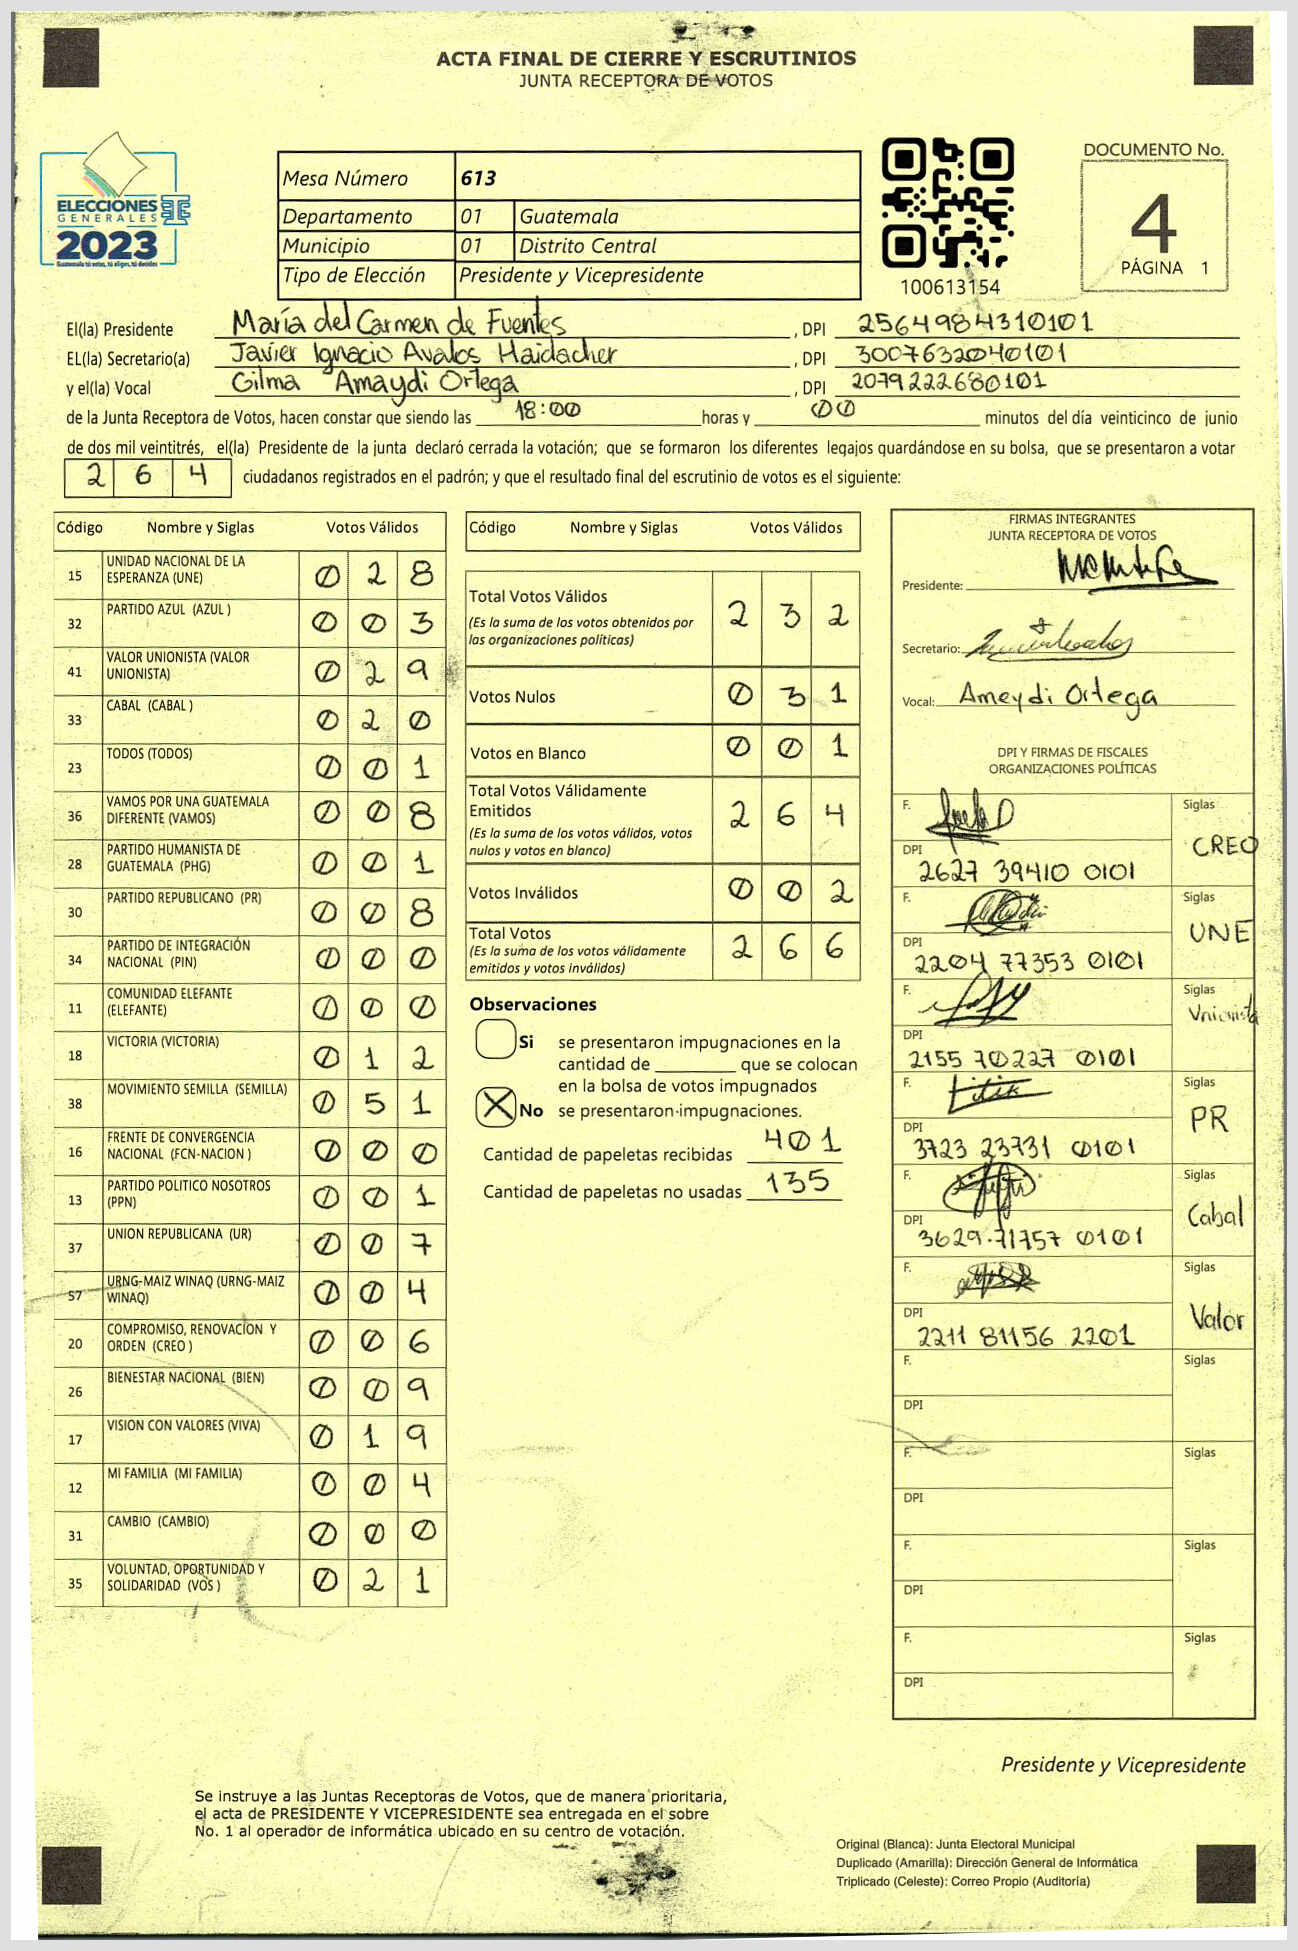 ACTA FINAL DE CIERRE Y ESCRUTINIOS
JUNTA RECEPTORA DE VOTOS
ELECCIONES
GENERALES
2023
Guatemala tú votas, tú eliges, tú decides
Mesa Número 613
Departamento 01 Guatemala
Municipio 01 Distrito Central
Tipo de Elección Presidente y Vicepresidente
100613154
DOCUMENTO No.
4
PÁGINA 1
El(la) Presidente María del Carmen de Fuentes, DPI 2564984310101
EL(la) Secretario(a) Javier Ignacio Avalos Haidacher, DPI 3007632040101
y el(la) Vocal Gilma Amaydi Ortega, DPI 2079222680101
de la Junta Receptora de Votos, hacen constar que siendo las 18:00 horas y 00 minutos del día veinticinco de junio
de dos mil veintitrés, el(la) Presidente de la junta declaró cerrada la votación; que se formaron los diferentes legajos quardándose en su bolsa, que se presentaron a votar
2 6 4 ciudadanos registrados en el padrón; y que el resultado final del escrutinio de votos es el siguiente:
Código Nombre y Siglas Votos Válidos
15 UNIDAD NACIONAL DE LA ESPERANZA (UNE) 0 2 8
32 PARTIDO AZUL (AZUL ) 0 0 3
41 VALOR UNIONISTA (VALOR UNIONISTA) 0 2 9
33 CABAL (CABAL ) 0 2 0
23 TODOS (TODOS) 0 0 1
36 VAMOS POR UNA GUATEMALA DIFERENTE (VAMOS) 0 0 8
28 PARTIDO HUMANISTA DE GUATEMALA (PHG) 0 0 1
30 PARTIDO REPUBLICANO (PR) 0 0 8
34 PARTIDO DE INTEGRACIÓN NACIONAL (PIN) 0 0 0
11 COMUNIDAD ELEFANTE (ELEFANTE) 0 0 0
18 VICTORIA (VICTORIA) 0 1 2
38 MOVIMIENTO SEMILLA (SEMILLA) 0 5 1
16 FRENTE DE CONVERGENCIA NACIONAL (FCN-NACION ) 0 0 0
13 PARTIDO POLITICO NOSOTROS (PPN) 0 0 1
37 UNION REPUBLICANA (UR) 0 0 7
57 URNG-MAIZ WINAQ (URNG-MAIZ WINAQ) 0 0 4
20 COMPROMISO, RENOVACION Y ORDEN (CREO ) 0 0 6
26 BIENESTAR NACIONAL (BIEN) 0 0 9
17 VISION CON VALORES (VIVA) 0 1 9
12 MI FAMILIA (MI FAMILIA) 0 0 4
31 CAMBIO (CAMBIO) 0 0 0
35 VOLUNTAD, OPORTUNIDAD Y SOLIDARIDAD (VOS ) 0 2 1
Código Nombre y Siglas Votos Válidos
Total Votos Válidos 2 3 2
(Es la suma de los votos obtenidos por
las organizaciones políticas)
Votos Nulos 0 3 1
Votos en Blanco 0 0 1
Total Votos Válidamente
Emitidos 2 6 4
(Es la suma de los votos válidos, votos
nulos y votos en blanco)
Votos Inválidos 0 0 2
Total Votos 2 6 6
(Es la suma de los votos válidamente
emitidos y votos inválidos)
Observaciones
Si se presentaron impugnaciones en la
cantidad de ________ que se colocan
en la bolsa de votos impugnados
X No se presentaron impugnaciones.
Cantidad de papeletas recibidas 401
Cantidad de papeletas no usadas 135
FIRMAS INTEGRANTES
JUNTA RECEPTORA DE VOTOS
Presidente:
Secretario:
Vocal: Ameydi Ortega
DPI Y FIRMAS DE FISCALES
ORGANIZACIONES POLÍTICAS
F. Siglas
CREO
DPI
2627 39410 0101
F. Siglas
UNE
DPI
2204 77353 0101
F. Siglas
Unionista
DPI
2155 70227 0101
F. Siglas
PR
DPI
3723 23731 0101
F. Siglas
Cabal
DPI
3629.71757 0101
F. Siglas
Valor
DPI
2211 81156 2201
F. Siglas
DPI
F. Siglas
DPI
F. Siglas
DPI
F. Siglas
DPI
Presidente y Vicepresidente
Se instruye a las Juntas Receptoras de Votos, que de manera prioritaria,
el acta de PRESIDENTE Y VICEPRESIDENTE sea entregada en el sobre
No. 1 al operador de informática ubicado en su centro de votación.
Original (Blanca): Junta Electoral Municipal
Duplicado (Amarilla): Dirección General de Informática
Triplicado (Celeste): Correo Propio (Auditoría)